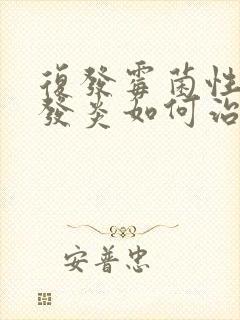 復發霉菌性
發炎如何治
安普忠